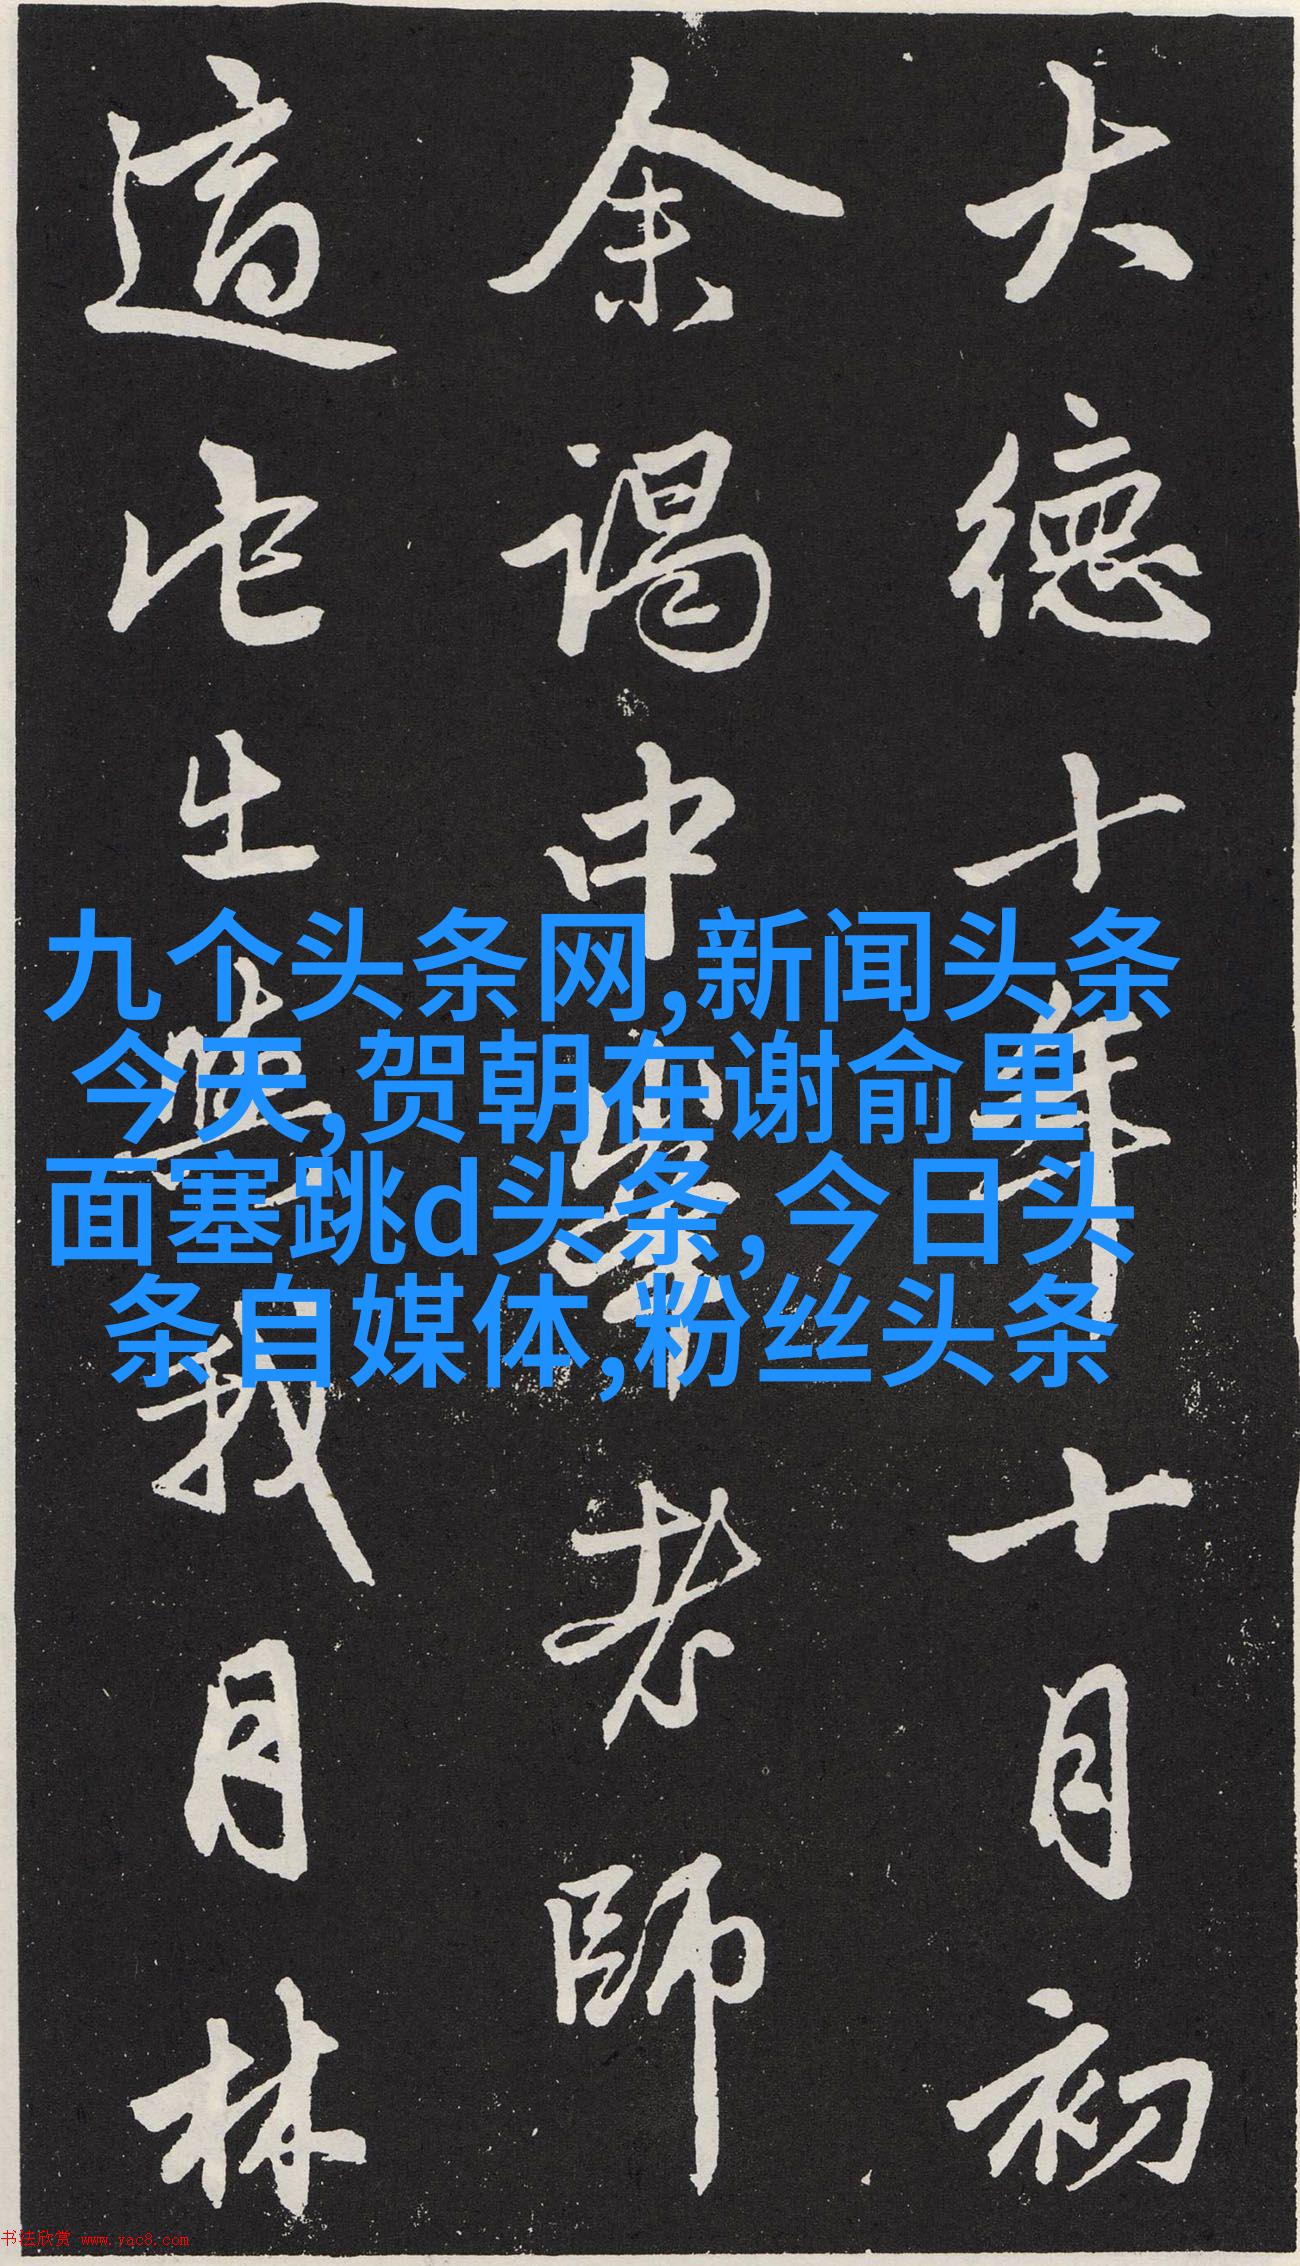 大德十年十月初
余谒中峯老師
適此出其我月林
九个头条网,新闻头条
今天,贺朝在谢俞里
面塞跳d头条, 今日头
条自媒体,粉丝头条
书法欣赏 www.yac8.com